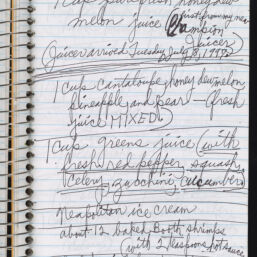 1 cup pure fresh honeydew
melon juice (just from my new
Champion
Juicer)
(Juicer arrived Tuesday July
1 cup cantaloupe, honeydew melon
pineapple and pear - (fresh
juice MIXED)
1 cup greens juice (with
fresh red pepper, squash,
celery, zucchine, cucumber)
Neapolitan ice cream
about 12 baked Booth shrimps
(with 2 teaspoons hot sauce